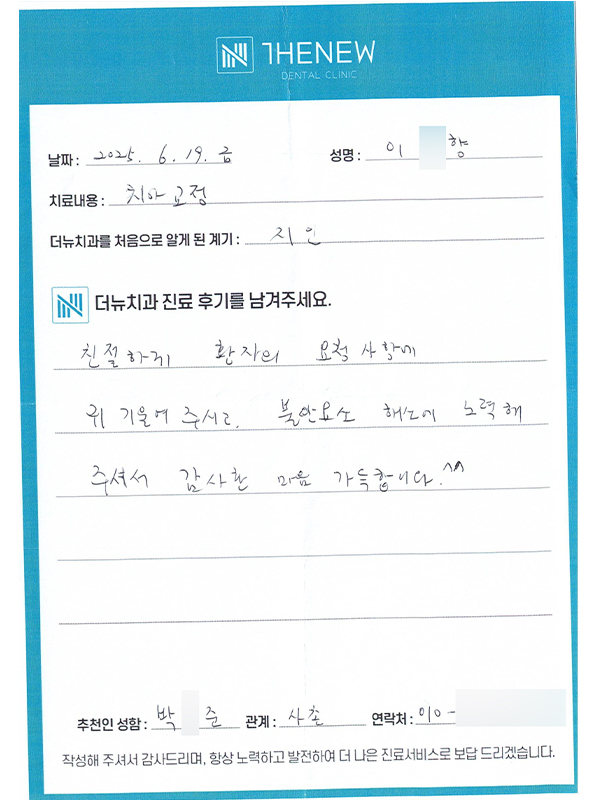 THENEW
DENTAL CLINIC
날짜 : 2025. 6. 19. 금 성명 : 이 향
치료내용 : 치아교정
더뉴치과를 처음으로 알게 된 계기 : 지인
더뉴치과 진료 후기를 남겨주세요.
친절하게 환자의 요청 사항에
귀 기울여 주시고, 불안요소 해소에 노력해
주셔서 감사한 마음 가득합니다.^^
추천인 성함 : 박 준 관계 : 사촌 연락처 : 010 -
작성해 주셔서 감사드리며, 항상 노력하고 발전하여 더 나은 진료서비스로 보답 드리겠습니다.